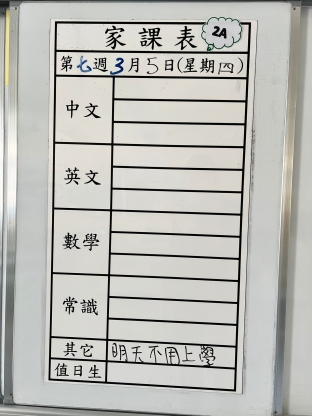 家課表 2A
第七週3月5日(星期四)
中文
英文
數學
常識
其它 明天不用上學
值日生